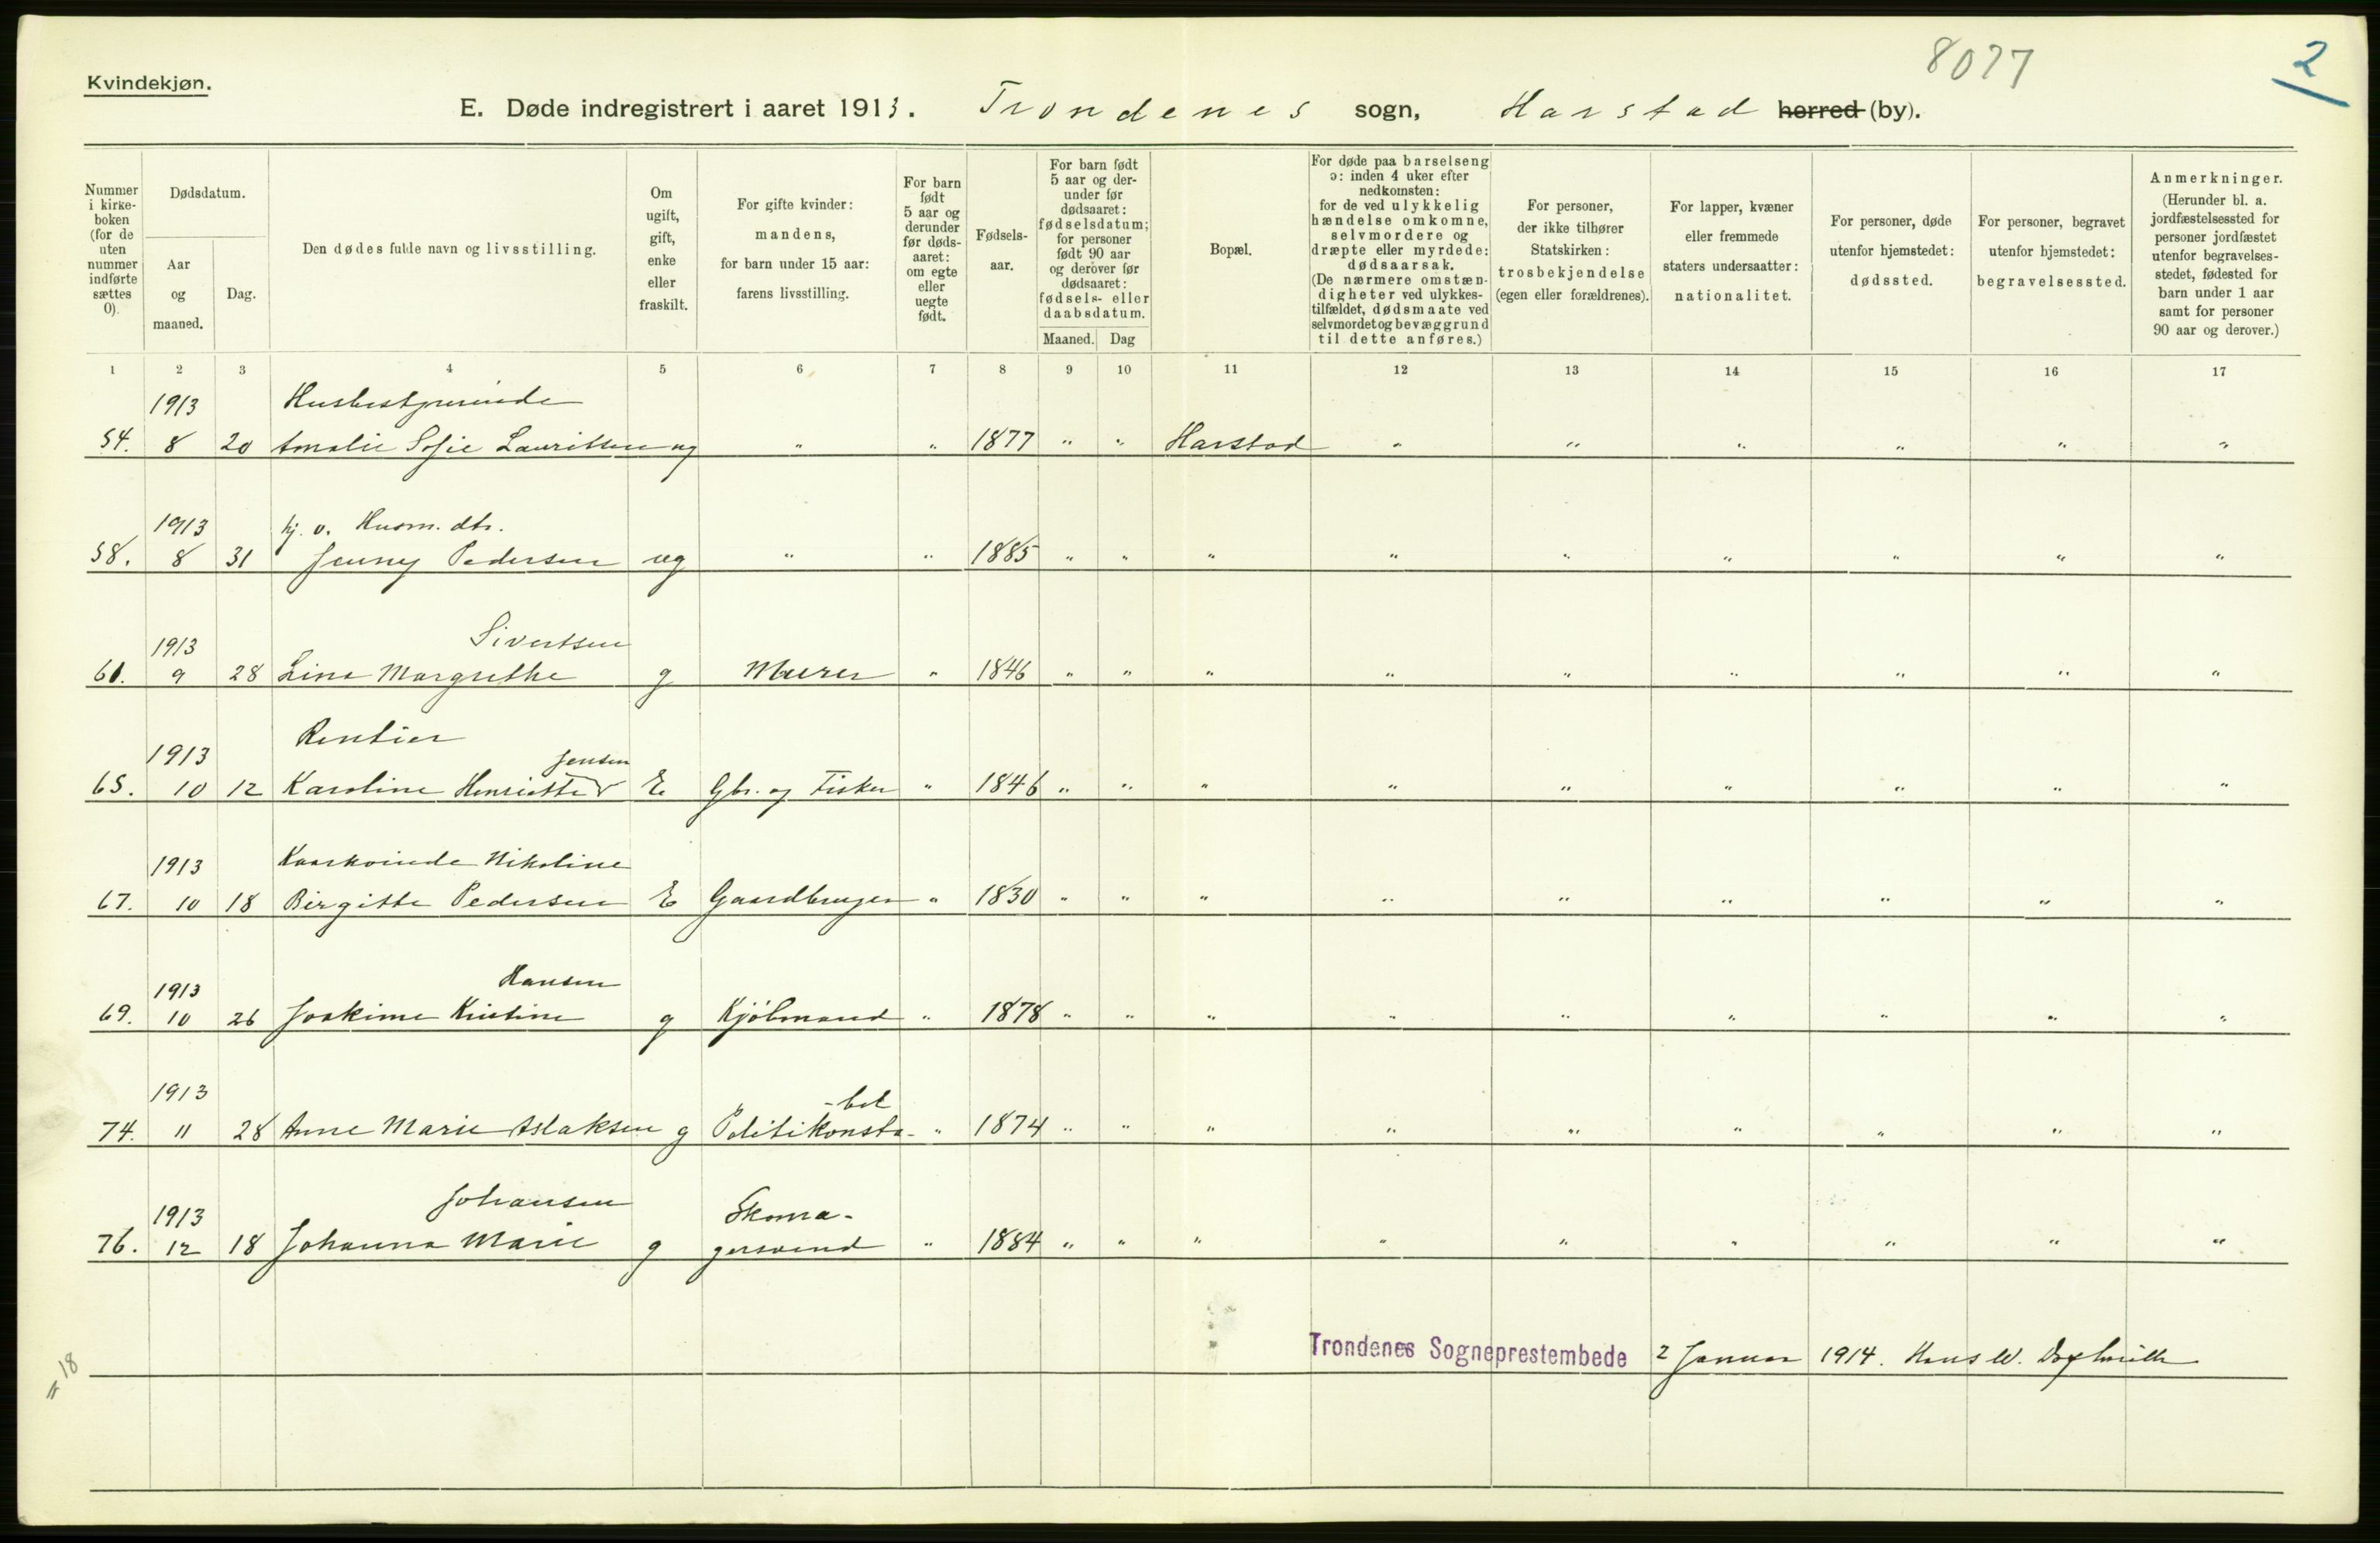 8077
2
Kvindekjøn.
E. Døde indregistrert i aaret 1913. Trondenes sogn, Harstad herred (by).
Nummer i kirke-boken (for de uten nummer indførte sættes 0).
Dødsdatum.
Aar og maaned.
Dag.
Den dødes fulde navn og livsstilling.
Om ugift, gift, enke eller fraskilt.
For gifte kvinder: mandens, for barn under 15 aar: farens livsstilling.
For barn født 5 aar og derunder før døds-aaret: om egte eller uegte født.
Fødsels-aar.
For barn født 5 aar og der-under før dødsaaret: fødselsdatum; for personer født 90 aar og derover før dødsaaret: fødsels- eller daabsdatum.
Maaned. Dag
Bopæl.
For døde paa barselseng ɔ: inden 4 uker efter nedkomsten: for de ved ulykkelig hændelse omkomne, selvmordere og dræpte eller myrdede: dødsaarsak. (De nærmere omstæn-digheter ved ulykkes-tilfældet, dødsmaate ved selvmordet og bevæggrund til dette anføres.)
For personer, der ikke tilhører Statskirken: trosbekjendelse (egen eller forældrenes).
For lapper, kvæner eller fremmede staters undersaatter: nationalitet.
For personer, døde utenfor hjemstedet: dødssted.
For personer, begravet utenfor hjemstedet: begravelsessted.
Anmerkninger. (Herunder bl. a. jordfæstelsessted for personer jordfæstet utenfor begravelses-stedet, fødested for barn under 1 aar samt for personer 90 aar og derover.)
1 2 3 4 5 6 7 8 9 10 11 12 13 14 15 16 17
1913 Husbestyrerinde
54. 8 20 Amalie Sofie Lauritsen ug " " 1877 " " Harstad " " " " " "
1913 hj. v. Husm. dtr.
58. 8 31 Jenny Pedersen ug " " 1885 " " " " " " " " "
1913 Sivertsen
61. 9 28 Lina Margrethe g Murer " 1846 " " " " " " " " "
1913 Rentier Jensen
65. 10 12 Karoline Henriette E Gbr. og Fisker " 1846 " " " " " " " " "
1913 Kaarkvinde Nikoline
67. 10 18 Birgitte Pedersen E Gaardbruger " 1830 " " " " " " " " "
1913 Hansen
69. 10 26 Joakime Kristine g Kjøbmand " 1878 " " " " " " " " "
1913 -bel
74. 11 28 Anne Marie Aslaksen g Politikonsta- " 1874 " " " " " " " " "
1913 Johansen Skoma-
76. 12 18 Johanna Marie g gersvend " 1884 " " " " " " " " "
Trondenes Sogneprestembede 2 Januar 1914. Hans W.
= 18